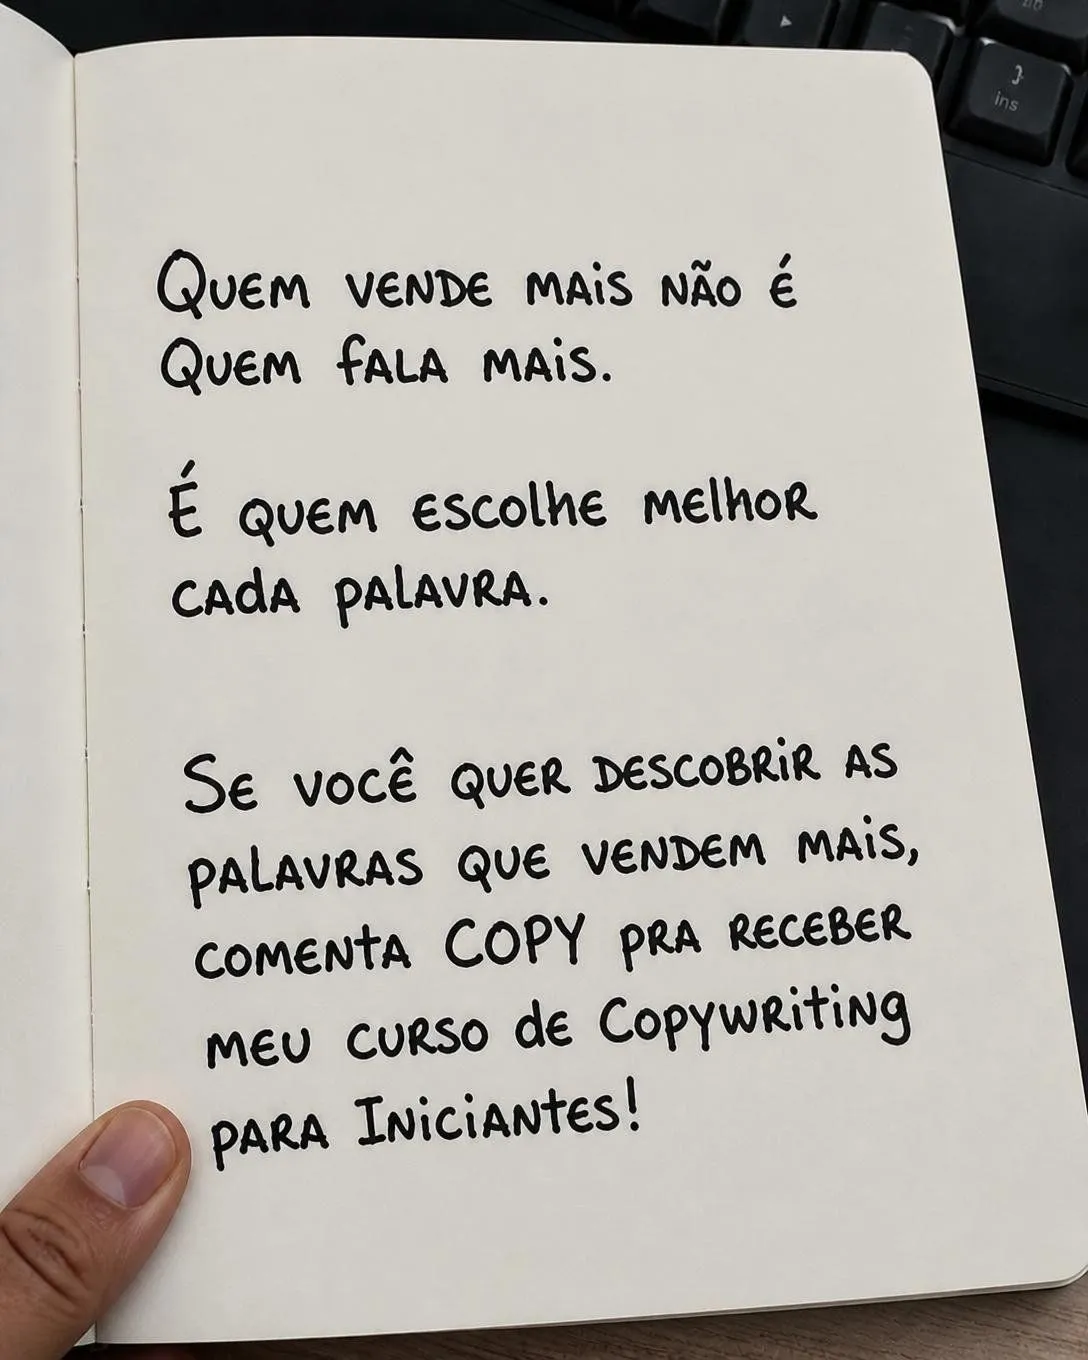 Quem vende mais não é
quem fala mais.
É quem escolhe melhor
cada palavra.
Se você quer descobrir as
palavras que vendem mais,
comenta COPY pra receber
meu curso de Copywriting
para Iniciantes!
ins